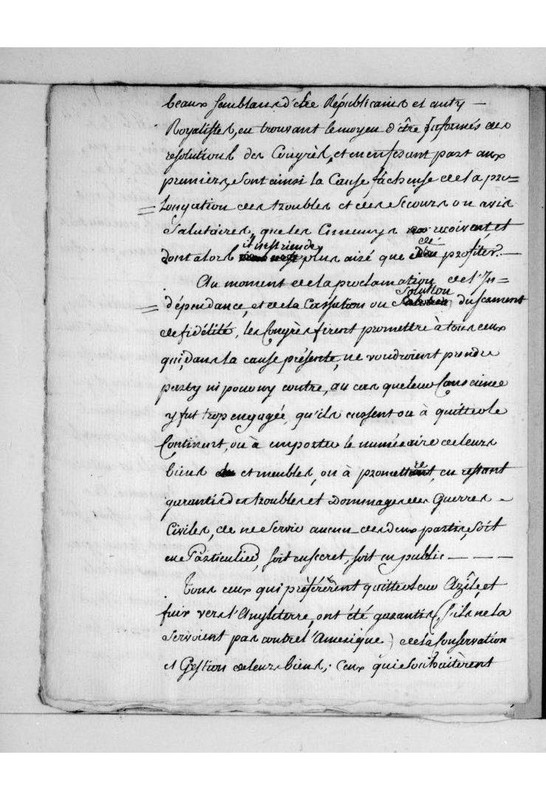 beaux semblans d'être Républicains et anty —
Royalistes, en trouvant le moyen d'être informés des
resolutions des Congrès, et en en fesant part aux
premiers, sont ainsi la Cause fâcheuse de la pro=
longation des troubles et des secours ou avis
Salutaires, que les Ennemys reçoivent et
dont alors plus aizé que de profiter. —
Au moment de la proclamation de l'In=
dépendance, et de la Cassation ou Solution du serment
de fidélité, les Congrès firent promettre à tous ceux
qui, dans la cause présente, ne voudroient prendre
party ni pour ny contre, au cas que leur Conscience
y fut trop engagée, qu'ils eussent ou à quitter le
Continent, ou à emporter le numéraire de leurs
biens et meubles, ou à promettre, en restant
garantis des troubles et dommages des Guerres —
Civiles, de ne servir aucun des deux partis, soit
en Particulier, soit en secret, soit en public — — —
Tous ceux qui préférèrent quitter leur Azile et
fuir vers l'Angleterre, ont été garantis (s'ils ne la
servoient pas contre l'Amerique) de la Conservation
et Gestion de leurs biens; Ceux qui souhaitèrent